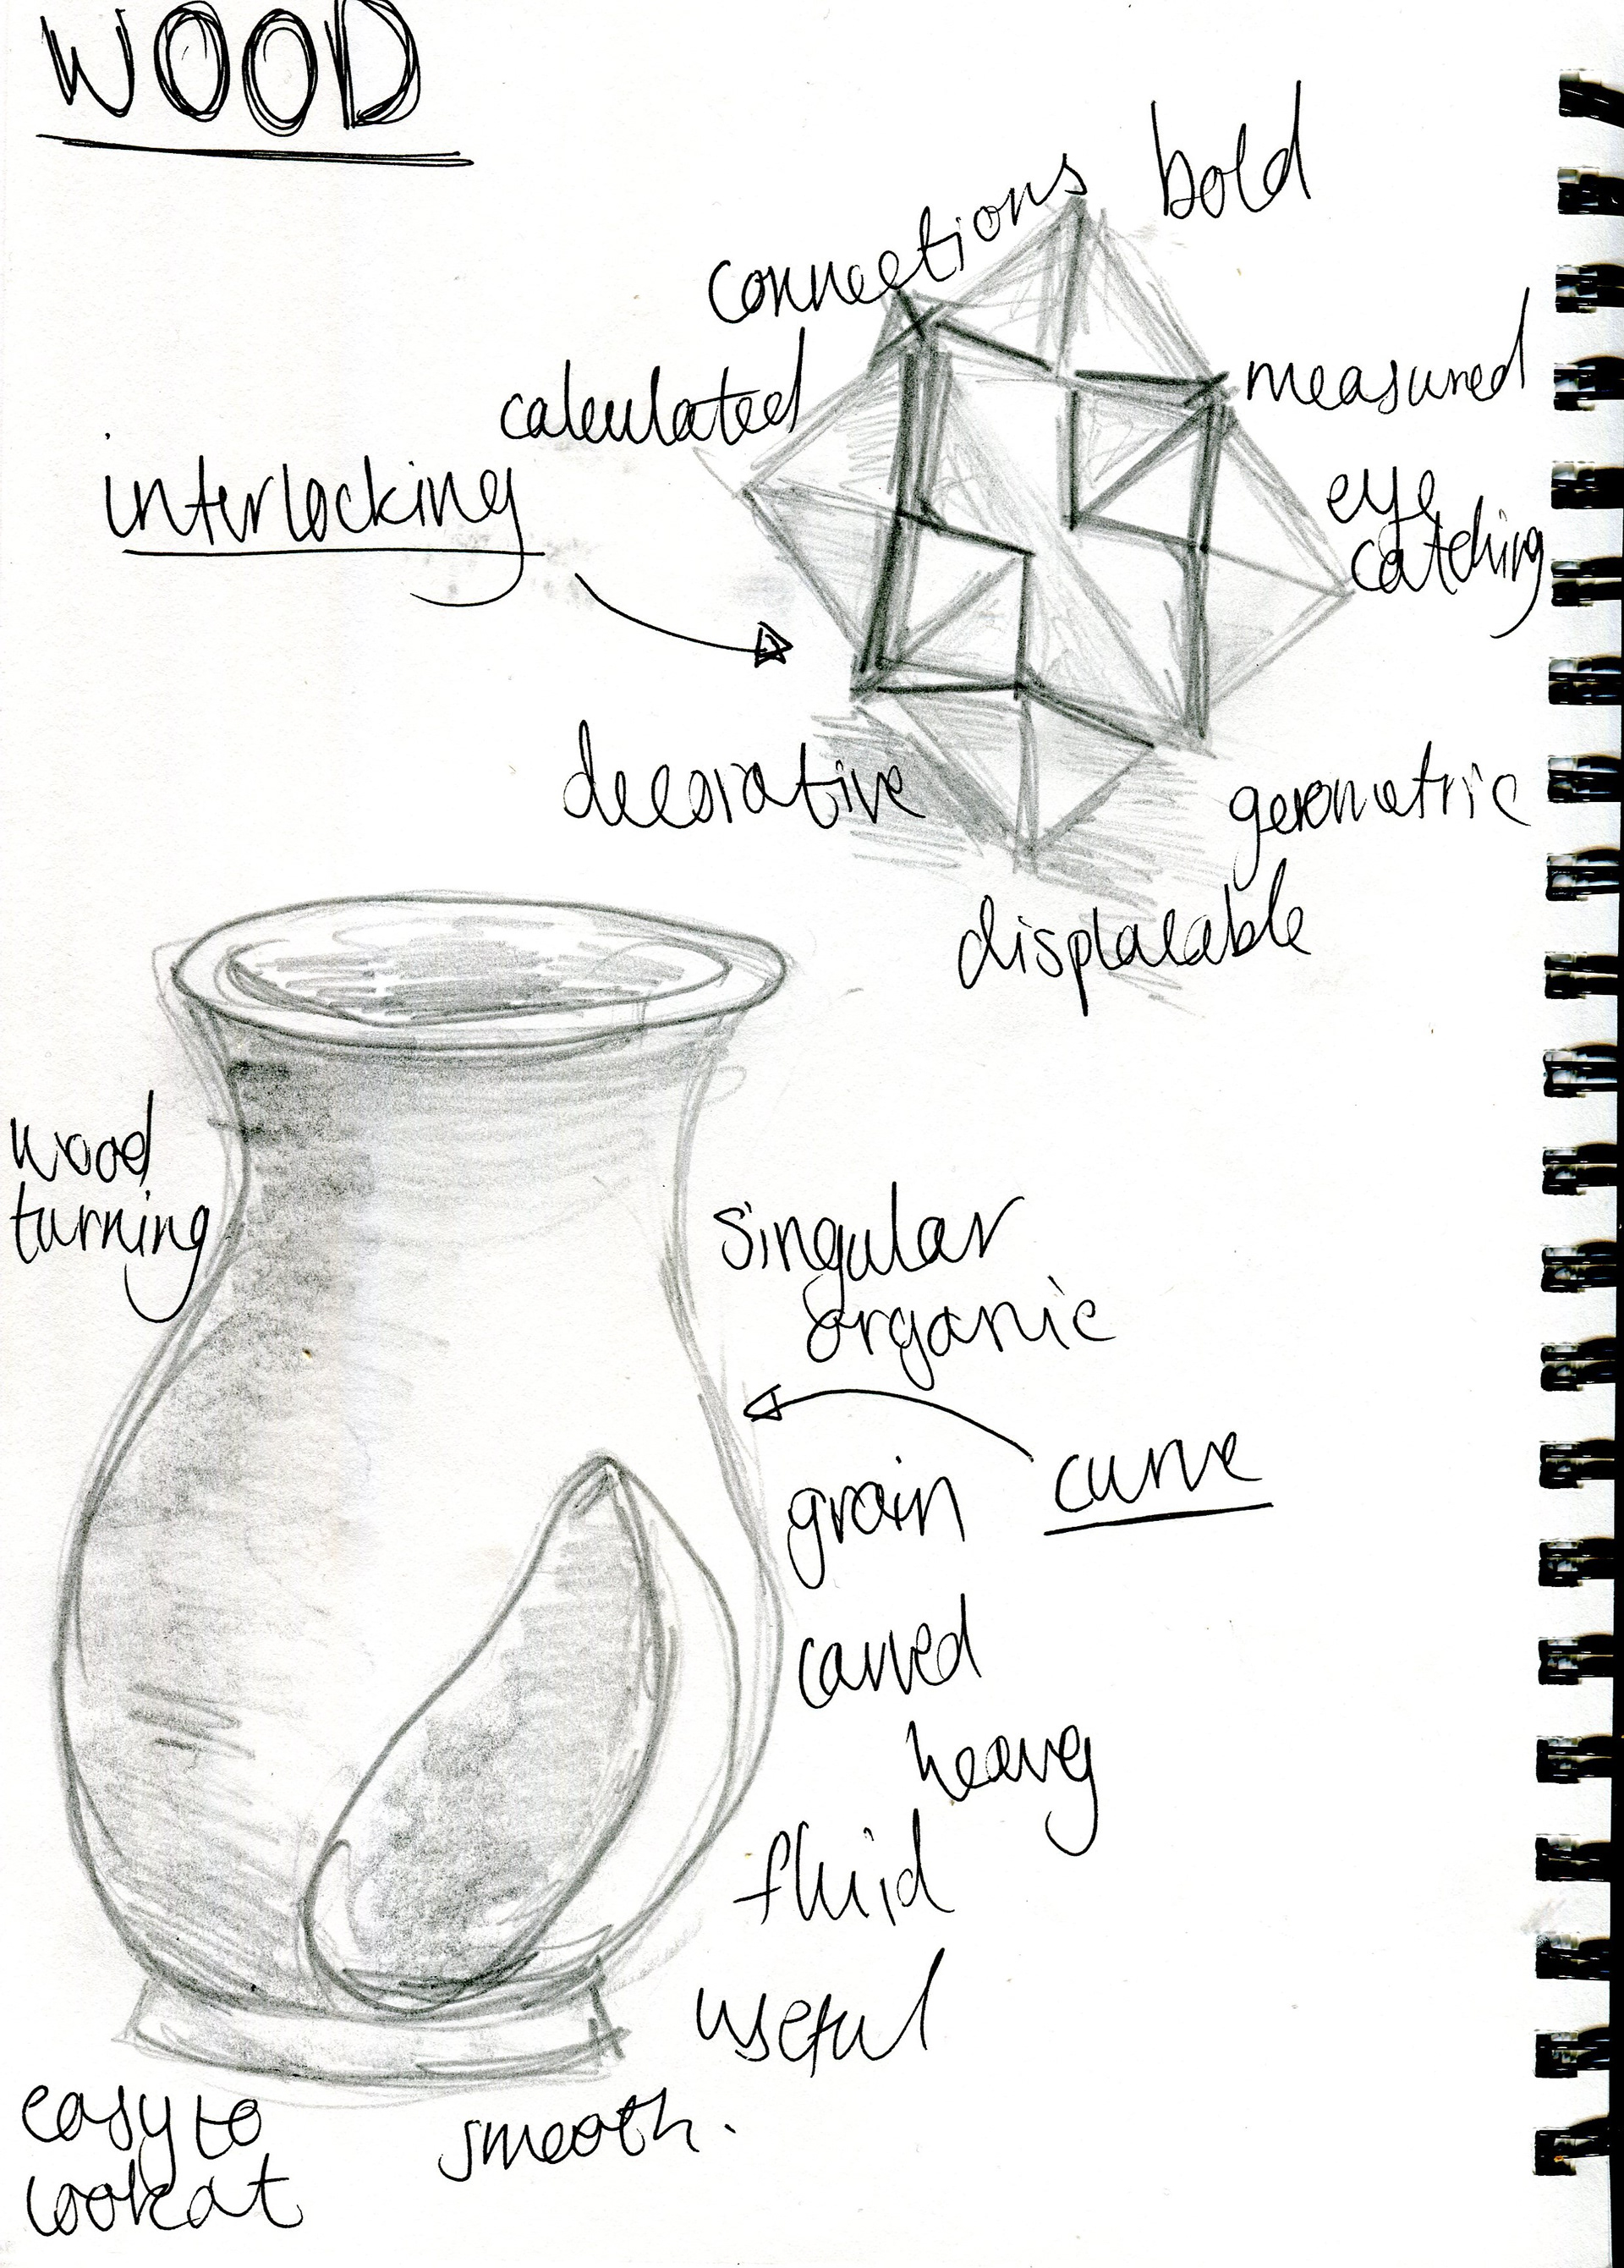 WOOD
bold
connections
measured
calculated
interlocking
eye
catching
decorative
gerometric
displacable
wood
turning
singular
organic
curve
grain
carved
heavy
fluid
useful
easy to
look at
smooth.